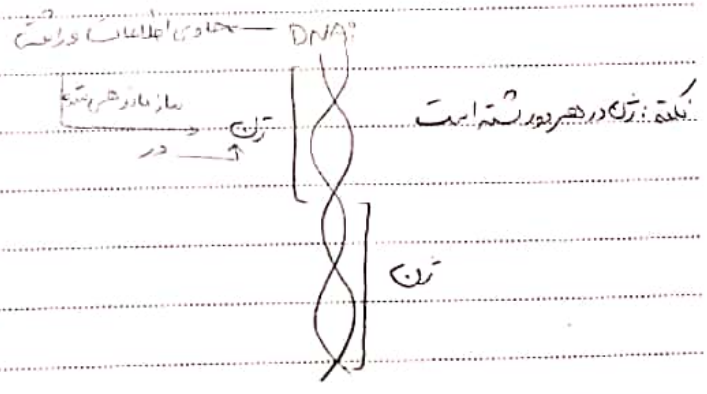 DNA: — حاوی اطلاعات وراثتی
سازماندهی شده
در
ژن
نکته: ژن در هر دو رشته است
ژن